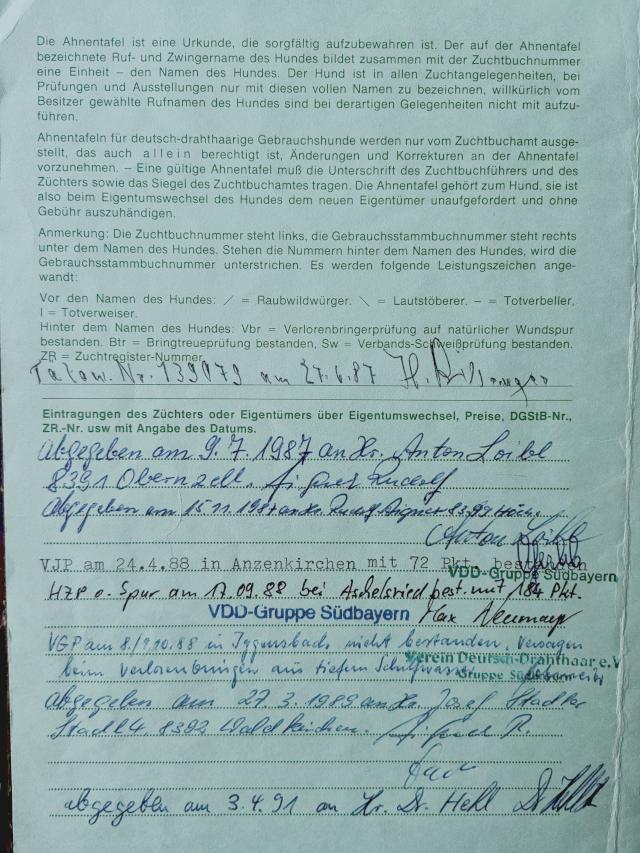 Die Ahnentafel ist eine Urkunde, die sorgfältig aufzubewahren ist. Der auf der Ahnentafel
bezeichnete Ruf- und Zwingername des Hundes bildet zusammen mit der Zuchtbuchnummer
eine Einheit – den Namen des Hundes. Der Hund ist in allen Zuchtangelegenheiten, bei
Prüfungen und Ausstellungen nur mit diesen vollen Namen zu bezeichnen, willkürlich vom
Besitzer gewählte Rufnamen des Hundes sind bei derartigen Gelegenheiten nicht mit aufzu-
führen.
Ahnentafeln für deutsch-drahthaarige Gebrauchshunde werden nur vom Zuchtbuchamt ausge-
stellt, das auch allein berechtigt ist, Änderungen und Korrekturen an der Ahnentafel
vorzunehmen. – Eine gültige Ahnentafel muß die Unterschrift des Zuchtbuchführers und des
Züchters sowie das Siegel des Zuchtbuchamtes tragen. Die Ahnentafel gehört zum Hund, sie ist
also beim Eigentumswechsel des Hundes dem neuen Eigentümer unaufgefordert und ohne
Gebühr auszuhändigen.
Anmerkung: Die Zuchtbuchnummer steht links, die Gebrauchsstammbuchnummer steht rechts
unter dem Namen des Hundes. Stehen die Nummern hinter dem Namen des Hundes, wird die
Gebrauchsstammbuchnummer unterstrichen. Es werden folgende Leistungszeichen ange-
wandt:
Vor den Namen des Hundes: / = Raubwildwürger. \ = Lautstöberer. – = Totverbeller.
I = Totverweiser.
Hinter dem Namen des Hundes: Vbr = Verlorenbringerprüfung auf natürlicher Wundspur
bestanden. Btr = Bringtreueprüfung bestanden, Sw = Verbands-Schweißprüfung bestanden.
ZR = Zuchtregister-Nummer
Tätow. Nr. 139079 am 27.6.87
Eintragungen des Züchters oder Eigentümers über Eigentumswechsel, Preise, DGStB-Nr.,
ZR.-Nr. usw mit Angabe des Datums.
abgegeben am 9.7.1987 an Hr. Anton Loibl
8391 Obernzell. Aigner Rudolf
Abgegeben am 15.11.1987 an Hr. Rudolf Aigner
Anton Loibl
VJP am 24.4.88 in Anzenkirchen mit 72 Pkt. bestanden
VDD-Gruppe Südbayern
HZP o. Spur am 17.09.88 bei Aschelsried best. mit 184 Pkt.
VDD-Gruppe Südbayern Max Neumayr
VGP am 8./9.10.88 in Iggensbach nicht bestanden, Versagen
beim Verlorenbringen aus tiefem Schilfwasser
Verein Deutsch-Drahthaar e.V.
Gruppe Südbayern
abgegeben am 27.3.1989 an Hr. Josef Stadler
Stadl 4. 8392 Waldkirchen. Aigner R.
abgegeben am 3.4.91 an Hr. Dr. Hekl